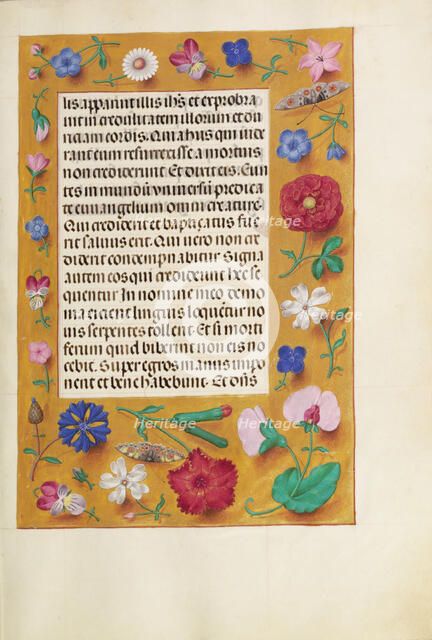 lis apparuit illis ihs et exprobra
uit incredulitatem illorum et du
riciam cordis. Quia hiis qui uide
rant eum resurrexisse a mortuis
non crediderunt. Et dixit eis. Eun
tes in mundum uniuersum predicate
euangelium omni creature.
Qui crediderit et baptizatus fue
rit saluus erit. Qui uero non cre
diderit condempnabitur. Signa
autem eos qui crediderint hec se
quentur. In nomine meo demo
nia eicient linguis loquetur no
uis serpentes tollent. Et si morti
ferum quid biberint non eis no
cebit. Super egros manus impo
nent et bene habebunt. Et dns
Heritage
Heritage
Heritage
Heritage
Heritage
Heritage